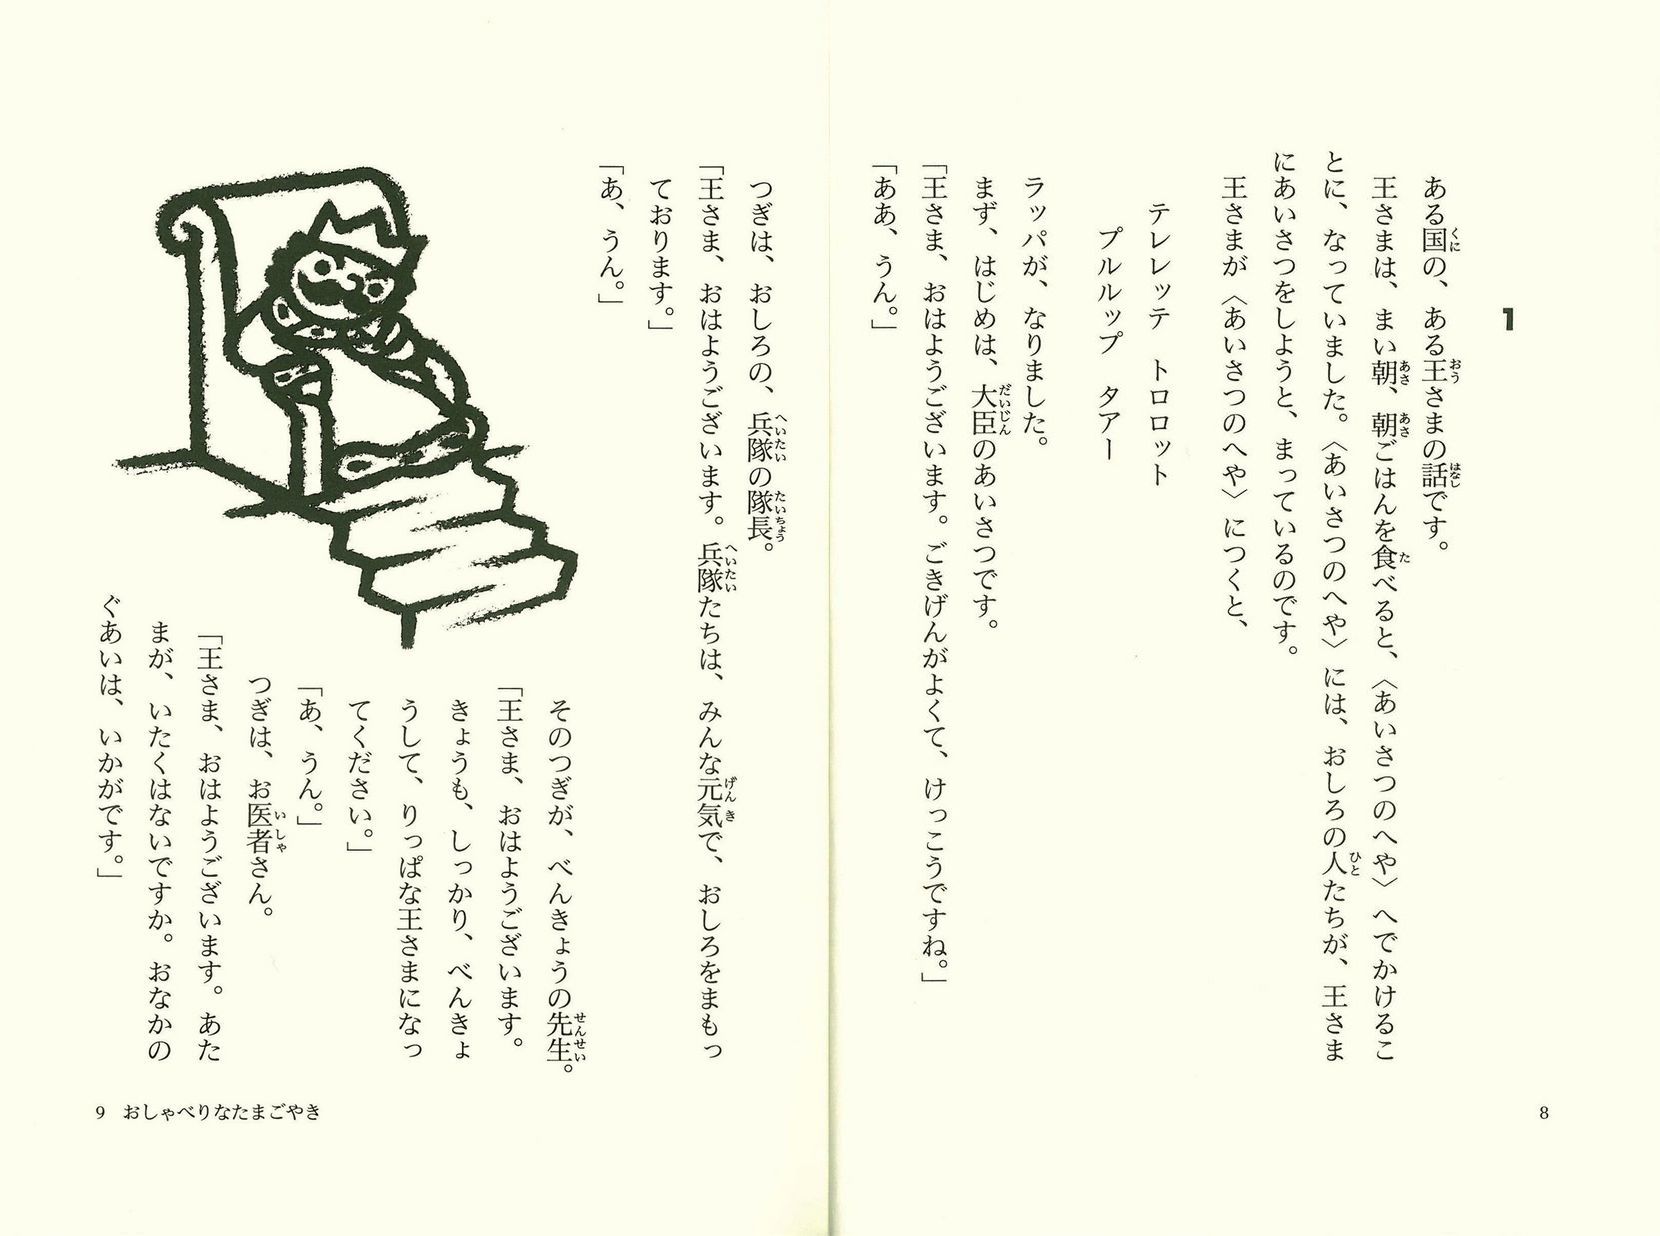 1
ある国の、ある王さまの話です。
王さまは、まい朝、朝ごはんを食べると、〈あいさつのへや〉へでかけるこ
とに、なっていました。〈あいさつのへや〉には、おしろの人たちが、王さま
にあいさつをしようと、まっているのです。
王さまが〈あいさつのへや〉につくと、
テレレッテ　トロロット
プルルップ　タアー
ラッパが、なりました。
まず、はじめは、大臣のあいさつです。
「王さま、おはようございます。ごきげんがよくて、けっこうですね。」
「ああ、うん。」
8
つぎは、おしろの、兵隊の隊長。
「王さま、おはようございます。兵隊たちは、みんな元気で、おしろをまもっ
ております。」
「あ、うん。」
そのつぎが、べんきょうの先生。
「王さま、おはようございます。
きょうも、しっかり、べんきょ
うして、りっぱな王さまになっ
てください。」
「あ、うん。」
つぎは、お医者さん。
「王さま、おはようございます。あた
まが、いたくはないですか。おなかの
ぐあいは、いかがです。」
9　おしゃべりなたまごやき